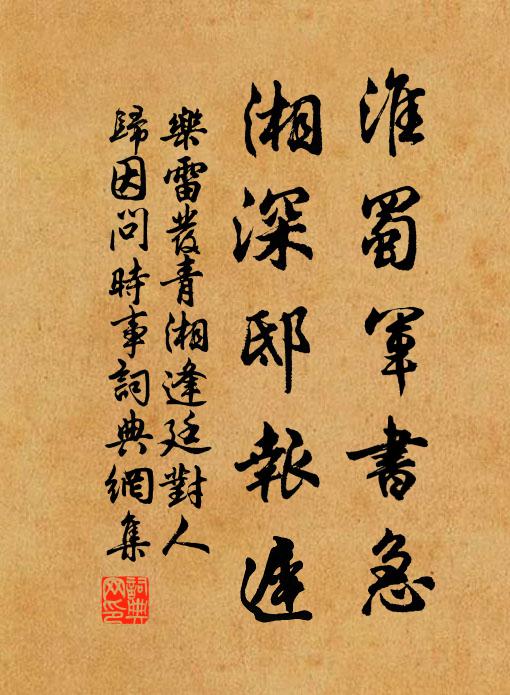 淮蜀軍書急
湘深邸報遲
樂雷發青湘逢廷對人
歸因問時事詞典網集
詞典网印